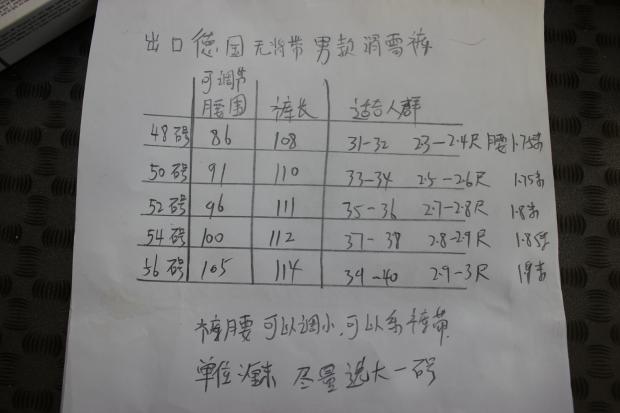 出口德国无背带男款滑雪裤
可调节腰围 裤长 适合人群
48码 86 108 31-32 23-2.4尺腰 1.75米
50码 91 110 33-34 2.5-2.6尺 1.75米
52码 96 111 35-36 2.7-2.8尺 1.8米
54码 100 112 37-38 2.8-2.9尺 1.85米
56码 105 114 39-40 2.9-3尺 1.9米
裤腰可以调小,可以系裤带
单位厘米 尽量选大一码